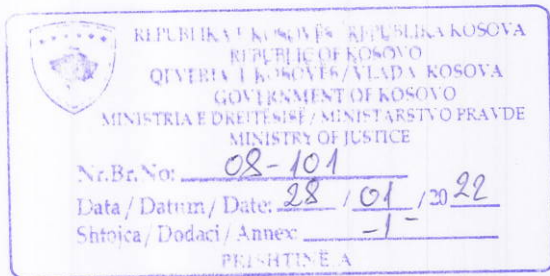 REPUBLIKA E KOSOVËS / REPUBLIKA KOSOVA
REPUBLIC OF KOSOVO
QEVERIA E KOSOVËS / VLADA KOSOVA
GOVERNMENT OF KOSOVO
MINISTRIA E DREJTËSISË / MINISTARSTVO PRAVDE
MINISTRY OF JUSTICE
Nr.Br.No: 08-101
Data / Datum / Date: 28 / 01 / 2022
Shtojca / Dodaci / Annex: -1-
PRISHTINË A